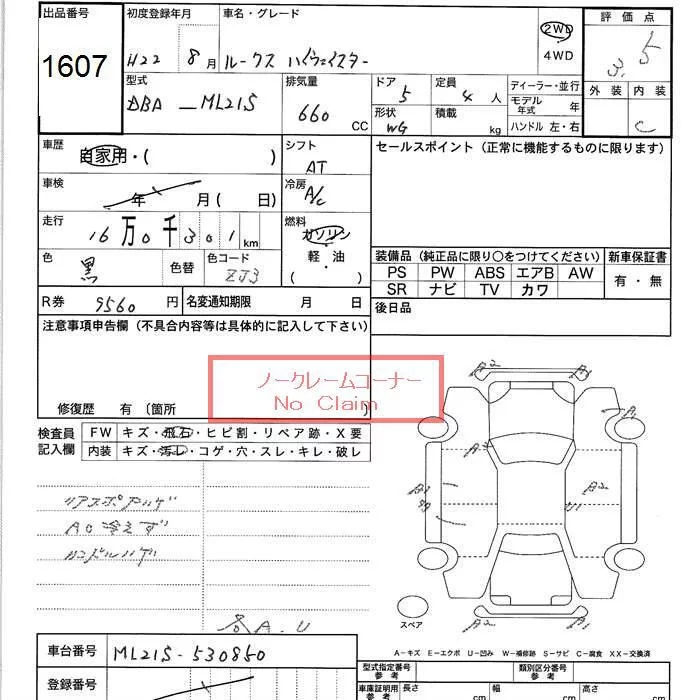 出品番号
1607
初度登録年月
H22 8月
車名・グレード
ルークス ハイウェイスター
2WD
4WD
評価点
3.5
外装 内装
C
型式
DBA-ML21S
排気量
660 CC
ドア
5
形状
WG
定員
4 人
積載 kg
ディーラー・並行
モデル年式 年
ハンドル 左・右
車歴
自家用・( )
シフト
AT
セールスポイント(正常に機能するものに限ります)
車検
年 月( 日)
冷房
A/C
走行
16万0千301km
燃料
ガソリン
軽・油
( )
色
黒
色替
色コード
ZJ3
装備品(純正品に限り○をつけてください)
PS PW ABS エアB AW
SR ナビ TV カワ
新車保証書
有・無
R券 9560円
名変通知期限 月 日
後日品
注意事項申告欄(不具合内容等は具体的に記入して下さい)
ノークレームコーナー
No Claim
修復歴 有 〔箇所
検査員記入欄
FW キズ・飛石・ヒビ割・リペア跡・X要
内装 キズ・汚レ・コゲ・穴・スレ・キレ・破レ
リアスポアルゲ
AC冷えず
ハンドルハゲ
各A.U
A2
A1
A1
A2
U1
スペア
A-キズ E-エクボ U-凹み W-補修跡 S-サビ C-腐食 XX-交換済
車台番号 ML21S-530850
登録番号
型式指定番号 参考
類別区分番号 参考
車庫証明用 参考
長さ cm
幅 cm
高さ cm